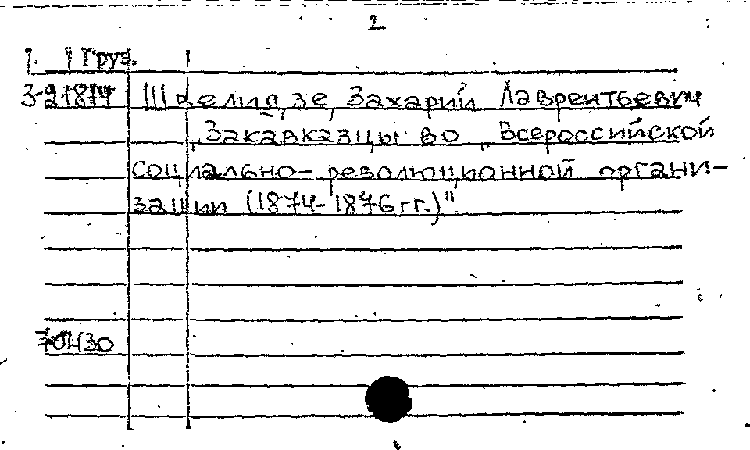 2
Груз.
3-21814 Швелидзе, Захарий Лаврентьевич
„Закавказцы во „Всероссийской
социально-революционной органи-
зации (1874-1876 гг.)"